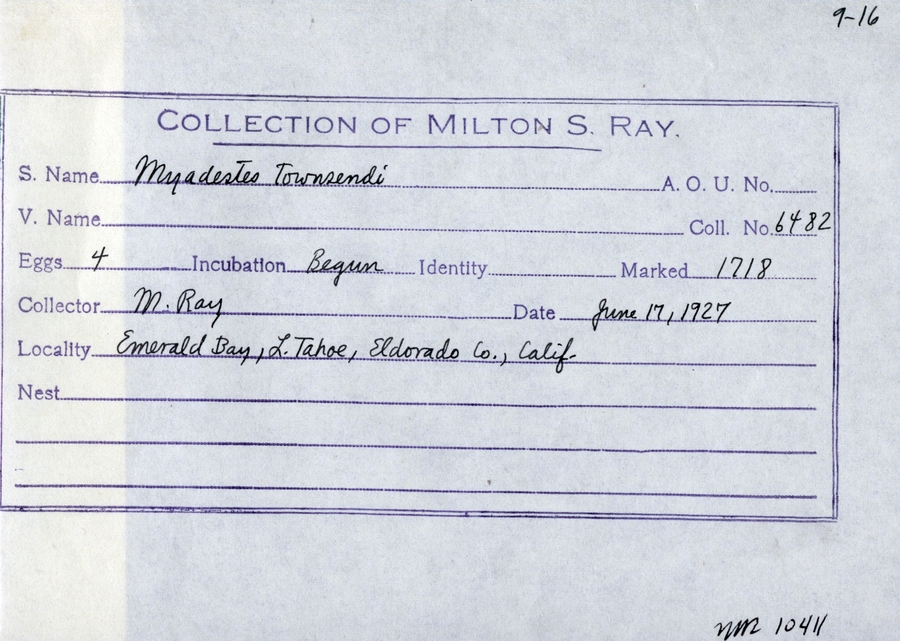 9-16
COLLECTION OF MILTON S. RAY.
S. Name Myadestes Townsendi A. O. U. No.
V. Name Coll. No. 6482
Eggs 4 Incubation Begun Identity Marked 1718
Collector M. Ray Date June 17, 1927
Locality Emerald Bay, L. Tahoe, Eldorado Co., Calif.
Nest